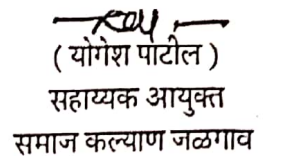 ( योगेश पाटील )
सहाय्यक आयुक्त
समाज कल्याण जळगाव